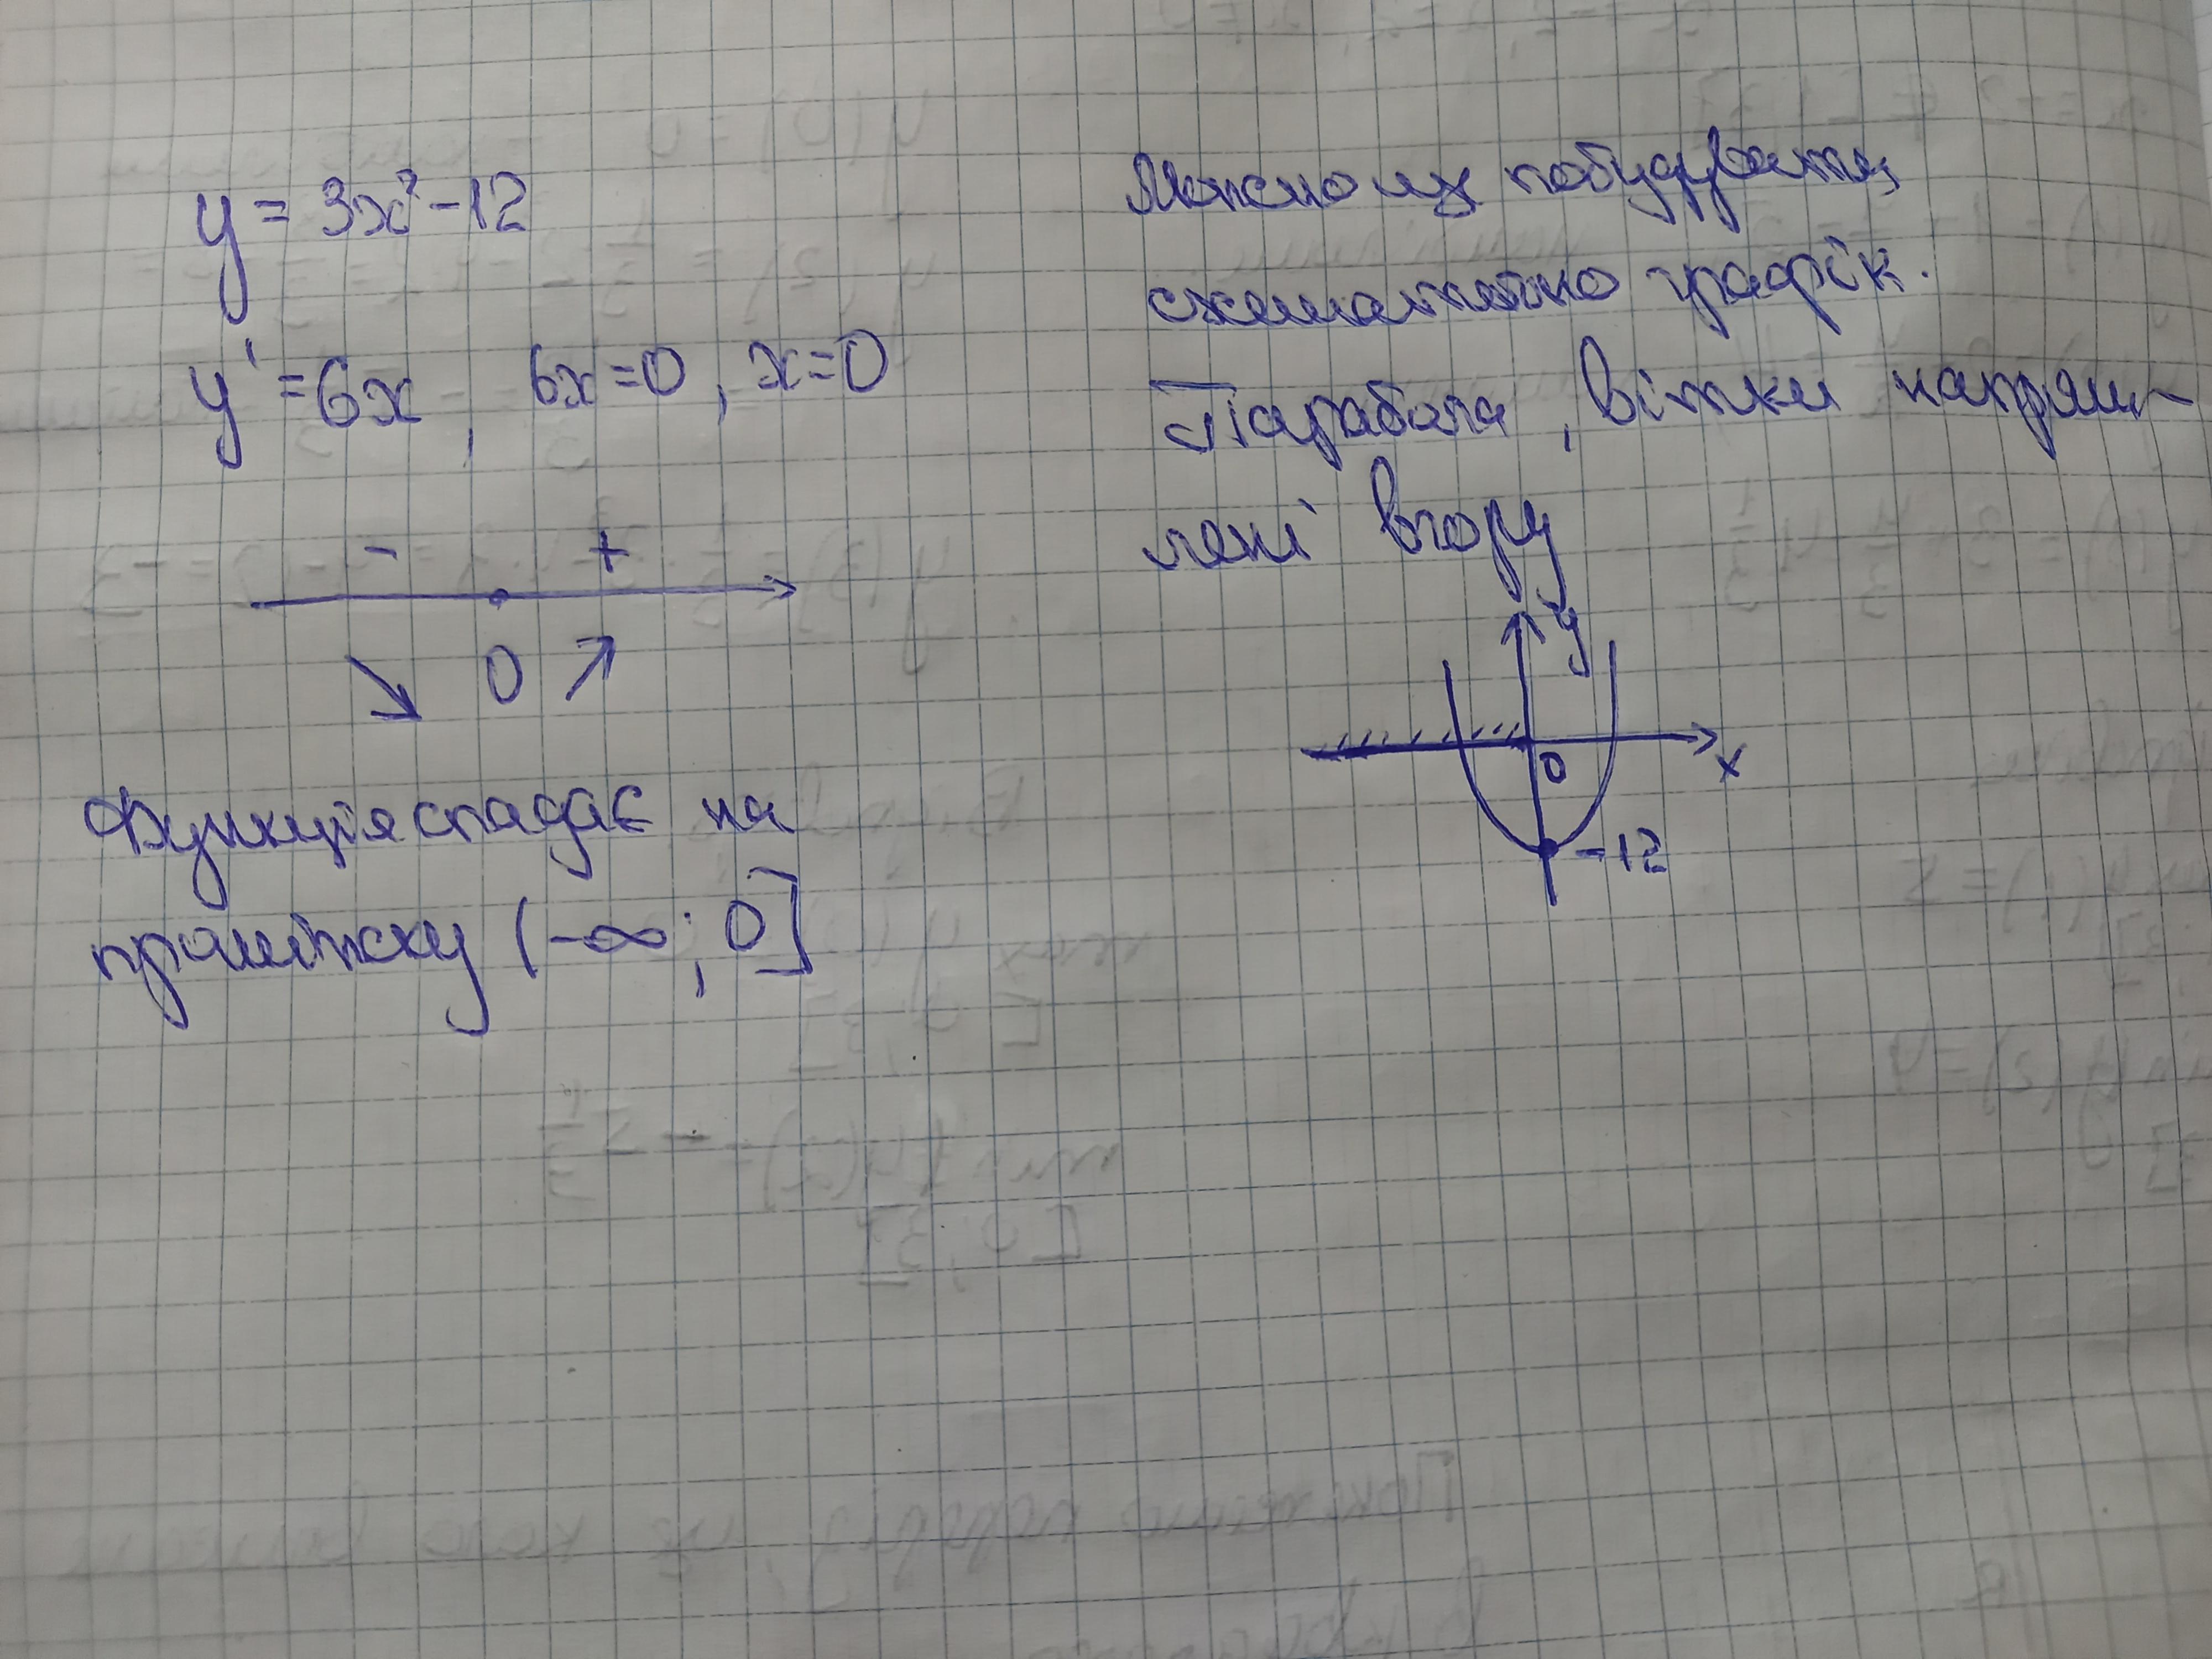 y = 3x² - 12
y' = 6x , 6x = 0 , x = 0
- +
0
Функція спадає на
проміжку (-∞; 0]
Можно побудувати
схематично графік.
Парабола , вітки напрям-
лені вгору
y
0
x
-12